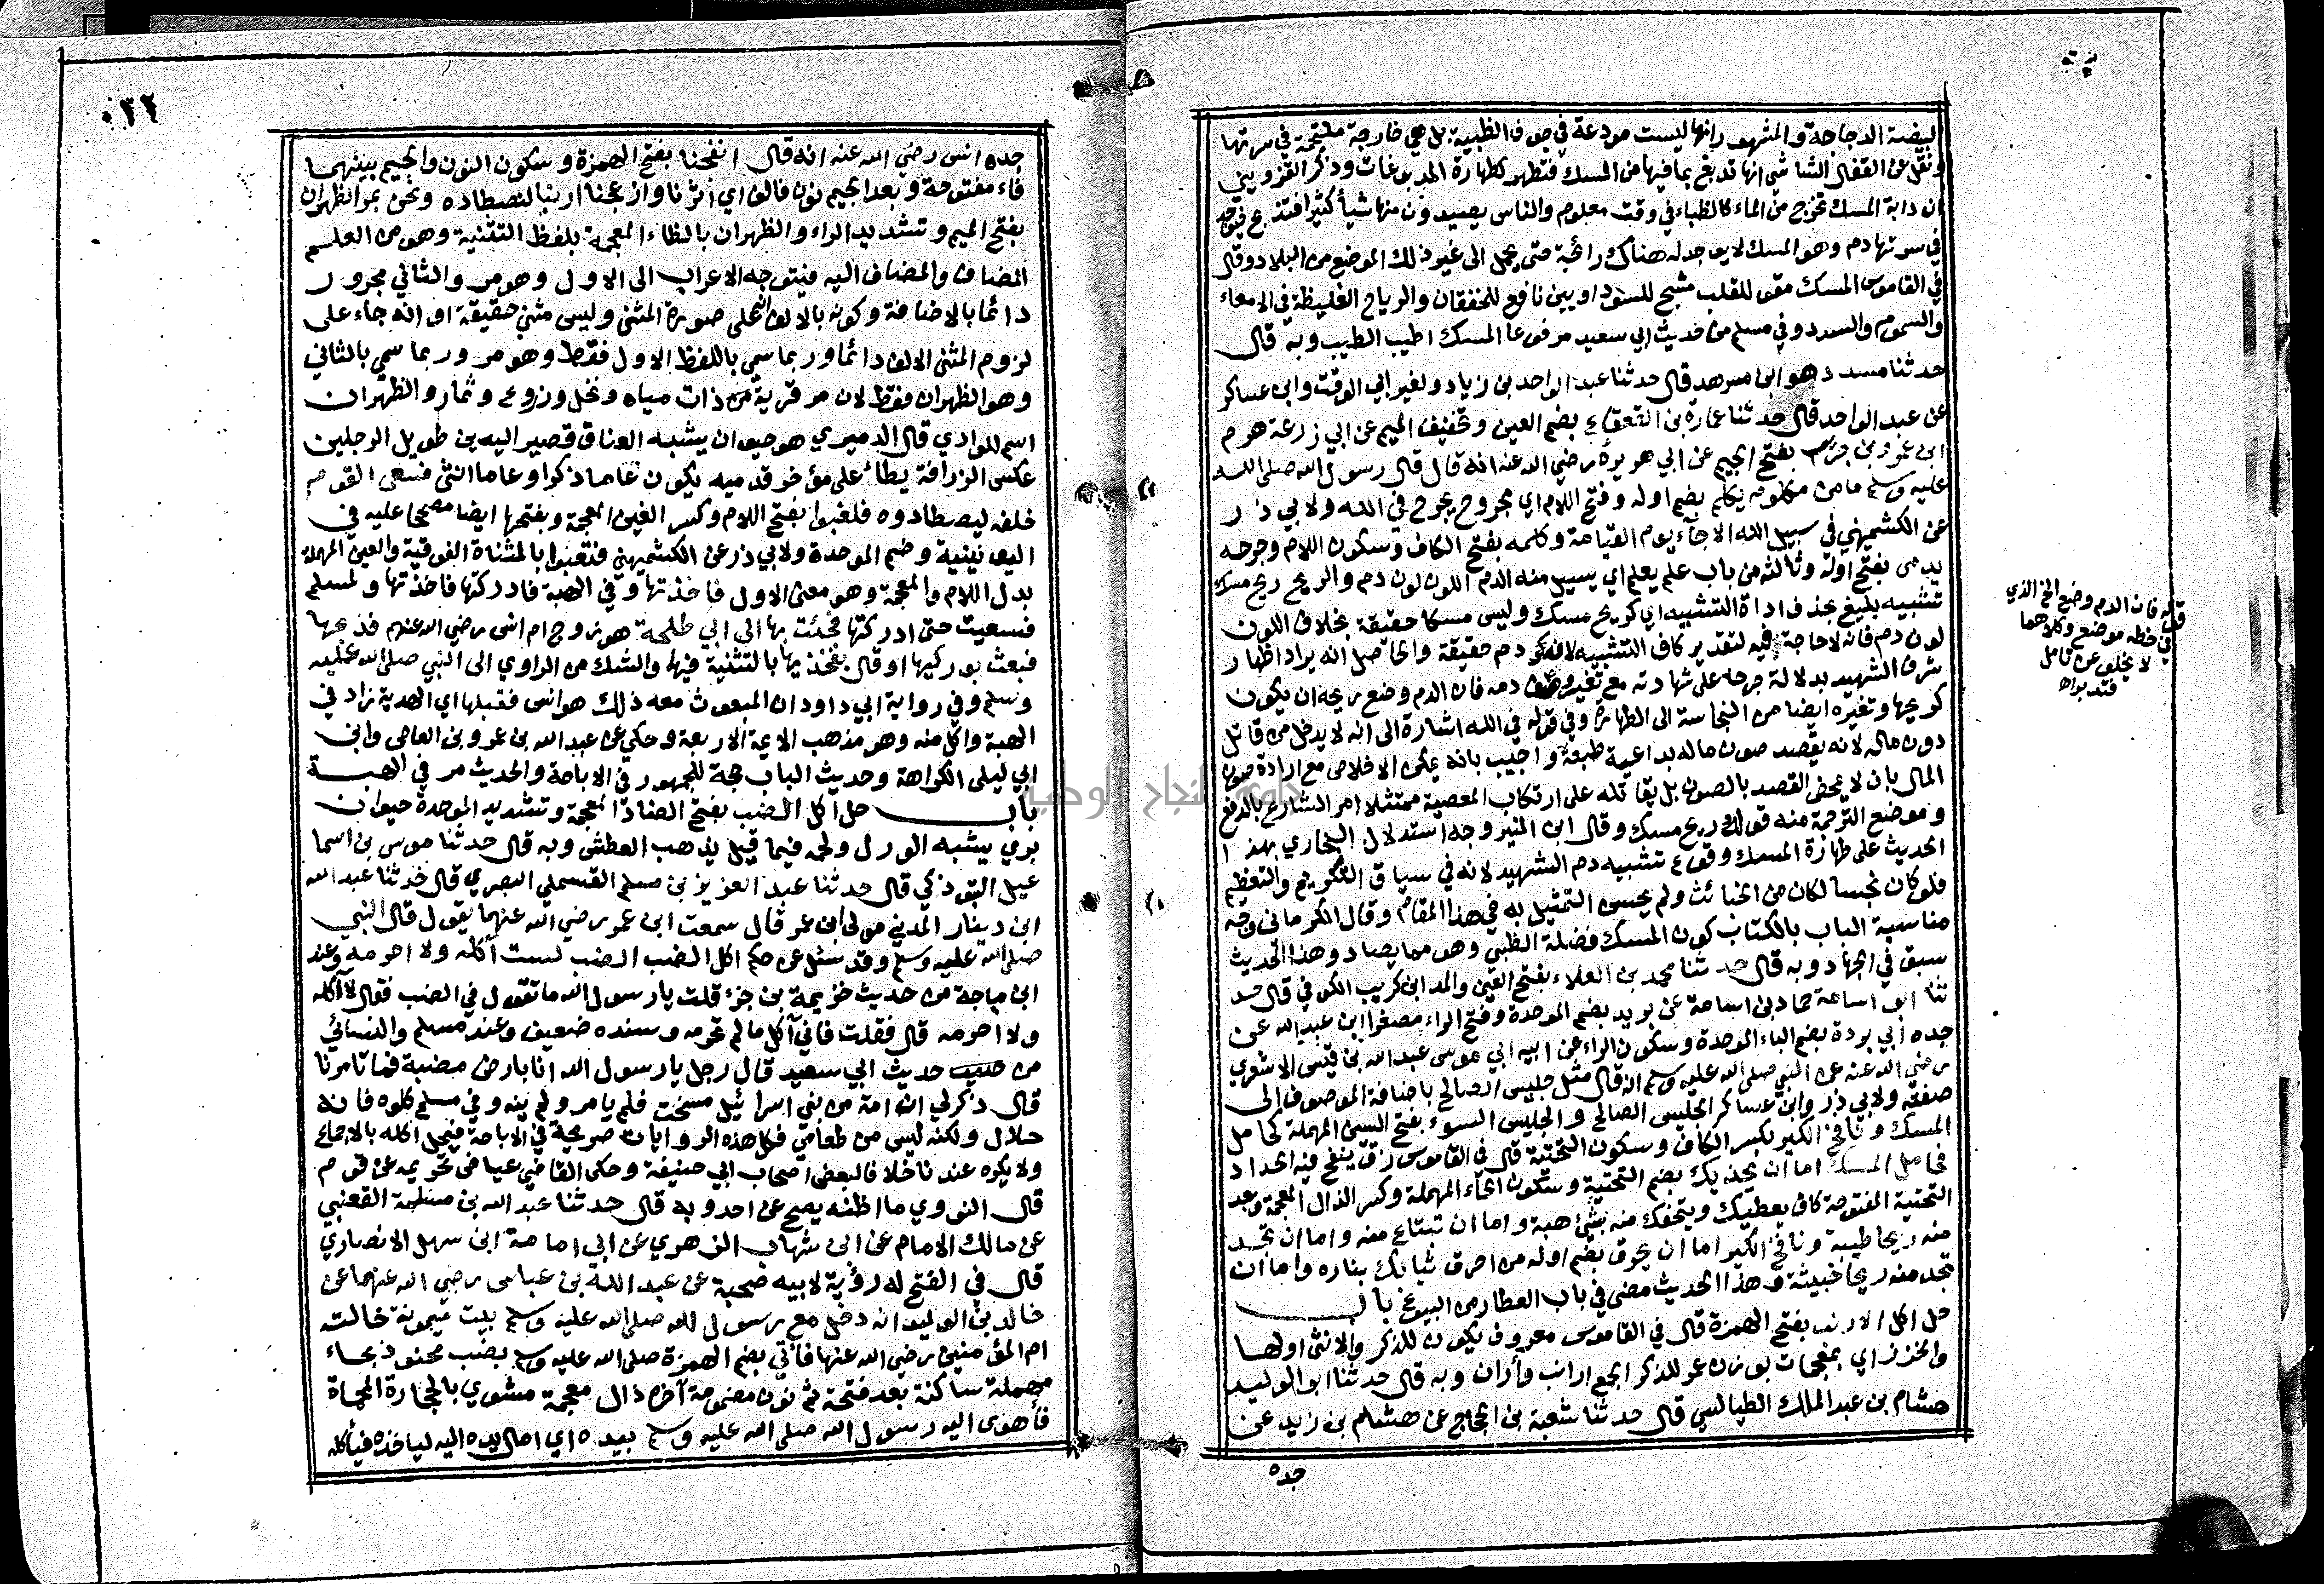 البيضة الدجاجة والمشهور انها ليست مودعة في جوف الظبية بل هي خارجة ملتحمة في سرتها
ونقل عن القفال الشاشي انها تدبغ بما فيها من المسك فتطهر كطهارة المدبوغات وذكر القزويني
ان دابة المسك تخرج من الماء كالظباء في وقت معلوم والناس يصيدون منها شيأ كثيرا فتذبح فيوجد
في سرتها دم وهو المسك لا يوجد له هناك رائحة حتى يحمل الى غير ذلك الموضع من البلاد وقال
في القاموس المسك مقو للقلب مشجع للسوداويين نافع للخفقان والرياح الغليظة في الامعاء
والسموم والسدد وفي مسلم من حديث ابي سعيد مرفوعا المسك اطيب الطيب وبه قال
حدثنا مسدد هو ابن مسرهد قال حدثنا عبد الواحد بن زياد ولغير ابي الوقت وابن عساكر
عن عبد الواحد قال حدثنا عمارة بن القعقاع بضم العين وتخفيف الميم عن ابي زرعة هرم
ابن عمرو بن جرير بفتح الجيم عن ابي هريرة رضي الله عنه انه قال قال رسول الله صلى الله
عليه وسلم ما من مكلوم يكلم بضم اوله وفتح اللام اي مجروح يجرح في الله ولابي ذر
عن الكشميهني في سبيل الله الا جاء يوم القيامة وكلمه بفتح الكاف وسكون اللام وجرحه
يدمى بفتح اوله وثالثه من باب علم يعلم اي يسيل منه الدم اللون لون دم والريح ريح مسك
تشبيه بليغ بحذف اداة التشبيه اي كريح مسك وليس مسكا حقيقة بخلاف اللون
لون دم فانه لا حاجة فيه لتقدير كاف التشبيه لانه دم حقيقة والحاصل انه يراد اظهار
شرف الشهيد بدلالة جرحه على شهادته مع تغير وصف دمه فان الدم وضع ريحه ان يكون
كريها وتغيره ايضا من النجاسة الى الطهارة وفي قوله في الله اشارة الى انه لا يدخل من قاتل
دون ماله لانه يقصد صون ماله بداعية طبعه واجيب بانه يمكن الاخلاص مع ارادة صون
المال بان لا يمحض القصد بالصون بل يقاتله على ارتكاب المعصية ممتثلا امر الشارع بالدفع
وموضع الترجمة منه قوله ريح مسك وقال ابن المنير وجه استدلال البخاري بهذا
الحديث على طهارة المسك وقوع تشبيه دم الشهيد لانه في سياق التكريم والتعظيم
فلو كان نجسا لكان من الخبائث ولم يحسن التمثيل به في هذا المقام وقال الكرماني وجه
مناسبة الباب بالكتاب كون المسك فضلة الظبي وهو مما يصاد وهذا الحديث
سبق في الجهاد وبه قال حدثنا محمد بن العلاء بفتح العين والمد ابن كريب الكوفي قال حد
ثنا ابو اسامة حماد بن اسامة عن بريد بضم الموحدة وفتح الراء مصغرا ابن عبد الله عن
جده ابي بردة بضم الباء الموحدة وسكون الراء عن ابيه ابي موسى عبد الله بن قيس الاشعري
رضي الله عنه عن النبي صلى الله عليه وسلم انه قال مثل جليس الصالح باضافة الموصوف الى
صفته ولابي ذر وابن عساكر الجليس الصالح والجليس السوء بفتح السين المهملة كحامل
المسك ونافخ الكير بكسر الكاف وسكون التحتية قال في القاموس زق ينفخ فيه الحداد
فحامل المسك اما ان يحذيك بضم التحتية وسكون الحاء المهملة وكسر الذال المعجمة وبعد
التحتية المفتوحة كاف يعطيك ويتحفك منه بشئ هبة واما ان تبتاع منه واما ان تجد
منه ريحا طيبة ونافخ الكير اما ان يحرق بضم اوله من احرق ثيابك بناره واما ان
تجد منه ريحا خبيثة وهذا الحديث مضى في باب العطار من البيوع باب
حل اكل الارنب بفتح الهمزة قال في القاموس معروف يكون للذكر والانثى او لها
والخزز اي بمعجمات بوزن عمر للذكر الجمع ارانب وأران وبه قال حدثنا ابو الوليد
هشام بن عبد الملك الطيالسي قال حدثنا شعبة بن الحجاج عن هشام بن زيد عن
جده
فان الدم وضع الخ الذي
في خطه موضع وكلاهما
لا يخلو عن تامل
فتدبر اه
٣٢
جده انس رضي الله عنه انه قال انفجنا بفتح الهمزة وسكون النون والجيم بينهما
فاء مفتوحة وبعد الجيم نون فالف اي اثرنا وازعجنا ارنبا لنصطاده ونحن بمر الظهران
بفتح الميم وتشديد الراء والظهران بالظاء المعجمة بلفظ التثنية وهو من العلم
المضاف والمضاف اليه فيتوجه الاعراب الى الاول وهو مر والثاني مجرور
دائما بالاضافة وكونه بالالف على صورة المثنى وليس مثنى حقيقة او انه جاء على
لزوم المثنى الالف دائما وربما سمي باللفظ الاول فقط وهو مر وربما سمي بالثاني
وهو الظهران فقط لان مر قرية من ذات مياه ونخل وزروع وثمار والظهران
اسم للوادي قال الدميري هو حيوان يشبه العناق قصير اليدين طويل الرجلين
عكس الزرافة يطأ على مؤخر قدميه يكون عاما ذكرا وعاما انثى فسعى القوم
خلفه ليصطادوه فلغبوا بفتح اللام وكسر الغين المعجمة وبفتحها ايضا مصححا عليه في
اليونينية وضم الموحدة ولابي ذر عن الكشميهني فتعبوا بالمثناة الفوقية والعين المهملة
بدل اللام والمعجمة وهو معنى الاول فاخذتها وفي الهبة فادركتها فاخذتها ولمسلم
فسعيت حتى ادركتها فجئت بها الى ابي طلحة هو زوج ام انس رضي الله عنهم فذبحها
فبعث بوركيها او قال بفخذيها بالتثنية فيها والشك من الراوي الى النبي صلى الله عليه
وسلم وفي رواية ابي داود ان المبعوث معه ذلك هو انس فقبلها اي الهدية زاد في
الهبة واكل منه وهو مذهب الايمة الاربعة وحكي عن عبد الله بن عمرو بن العاصي وابن
ابي ليلى الكراهة وحديث الباب حجة للجمهور في الاباحة والحديث مر في الهبة
باب حل اكل الضب بفتح الضاد المعجمة وتشديد الموحدة حيوان
بري يشبه الورل ولحمه فيما قيل يذهب العطش وبه قال حدثنا موسى بن اسما
عيل التبوذكي قال حدثنا عبد العزيز بن مسلم القسملي البصري قال حدثنا عبد الله
ابن دينار المدني مولى ابن عمر قال سمعت ابن عمر رضي الله عنهما يقول قال النبي
صلى الله عليه وسلم وقد سئل عن حكم اكل الضب الضب لست آكله ولا احرمه وعند
ابن ماجة من حديث خزيمة بن جزء قلت يا رسول الله ما تقول في الضب فقال لا آكله
ولا احرمه قال فقلت فاني آكل ما لم تحرمه وسنده ضعيف وعند مسلم والنسائي
من حديث ابي سعيد قال رجل يا رسول الله انا بارض مضبة فما تامرنا
قال ذكر لي ان امة من بني اسرائيل مسخت فلم يامر ولم ينه وفي مسلم كلوه فانه
حلال ولكنه ليس من طعامي فكل هذه الروايات صريحة في الاباحة فيحل اكله بالاجماع
ولا يكره عندنا خلافا لبعض اصحاب ابي حنيفة وحكى القاضي عياض تحريمه عن قوم
قال النووي ما اظنه يصح عن احد وبه قال حدثنا عبد الله بن مسلمة القعنبي
عن مالك الامام عن ابن شهاب الزهري عن ابي امامة ابن سهل الانصاري
قال في الفتح له رؤية لابيه صحبة عن عبد الله بن عباس رضي الله عنهما عن
خالد بن الوليد انه دخل مع رسول الله صلى الله عليه وسلم بيت ميمونة خالته
ام المؤمنين رضي الله عنها فأتي بضم الهمزة صلى الله عليه وسلم بضب محنوذ بحاء
مهملة ساكنة بعد فتحة ثم نون مضمومة آخره ذال معجمة مشوي بالحجارة المحماة
فأهوى اليه رسول الله صلى الله عليه وسلم بيده اي امال يده اليه لياخذه فيأكله